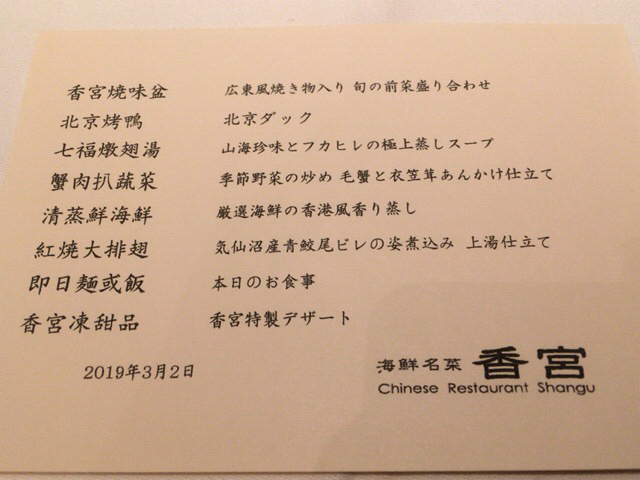 香宮焼味盆 広東風焼き物入り 旬の前菜盛り合わせ
北京烤鴨 北京ダック
七福燉翅湯 山海珍味とフカヒレの極上蒸しスープ
蟹肉扒蔬菜 季節野菜の炒め 毛蟹と衣笠茸あんかけ仕立て
清蒸鮮海鮮 厳選海鮮の香港風香り蒸し
紅焼大排翅 気仙沼産青鮫尾ビレの姿煮込み 上湯仕立て
即日麺或飯 本日のお食事
香宮凍甜品 香宮特製デザート
2019年3月2日
海鮮名菜 香宮
Chinese Restaurant Shangu